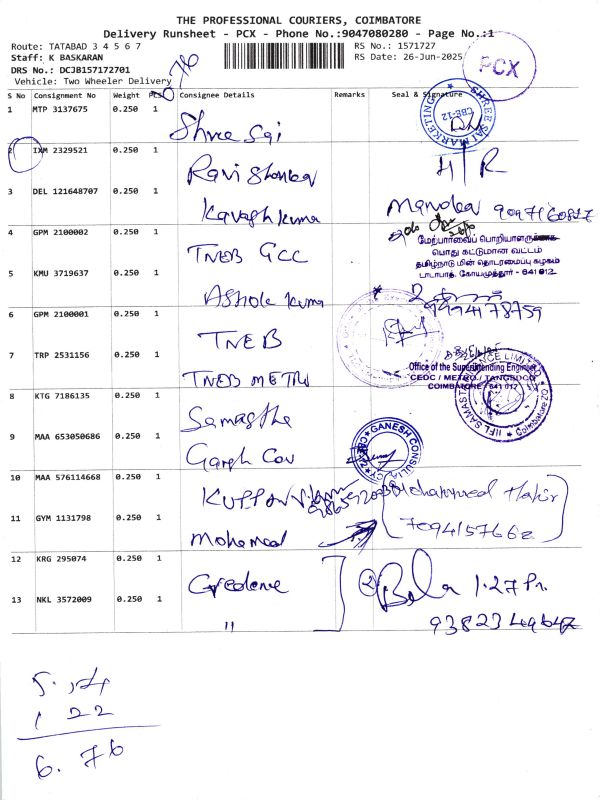 THE PROFESSIONAL COURIERS, COIMBATORE
Delivery Runsheet - PCX - Phone No.:9047080280 - Page No.:1
Route: TATABAD 3 4 5 6 7
RS No.: 1571727
Staff: K BASKARAN
RS Date: 26-Jun-2025
DRS No.: DCJB157172701
Vehicle: Two Wheeler Delivery
PCX
S No Consignment No Weight PCS Consignee Details Remarks Seal & Signature
1 MTP 3137675 0.250 1 Shree Sai
SHREE SAI MARKETING CBE-12
2 IXM 2329521 0.250 1 Ravi Shankar H/R
3 DEL 121648707 0.250 1 Kavash Kuma Manoka
4 GPM 2100002 0.250 1 TNEB GCC
மேற்பார்வைப் பொறியாளர்
பொது கட்டுமான வட்டம்
தமிழ்நாடு மின் தொடரமைப்பு கழகம்
டாடாபாத், கோயமுத்தூர் - 641 012.
5 KMU 3719637 0.250 1 Ashok Kuma 9994178759
6 GPM 2100001 0.250 1 TNEB
7 TRP 2531156 0.250 1 TNEB METRO
Office of the Superintending Engineer
CEDC / METRO / TANGEDCO
COIMBATORE - 641 012
IIFL SAMASTA FINANCE LIMITED
8 KTG 7186135 0.250 1 Samastha
9 MAA 653050686 0.250 1 Gansh Con
GANESH CONSULTANCY
10 MAA 576114668 0.250 1
11 GYM 1131798 0.250 1 Mohamed
Mohammed Thahir
7094157662
12 KRG 295074 0.250 1 Credence
2 Bala 1.27 Pr.
13 NKL 3572009 0.250 1 "
5.14
1 22
6.76